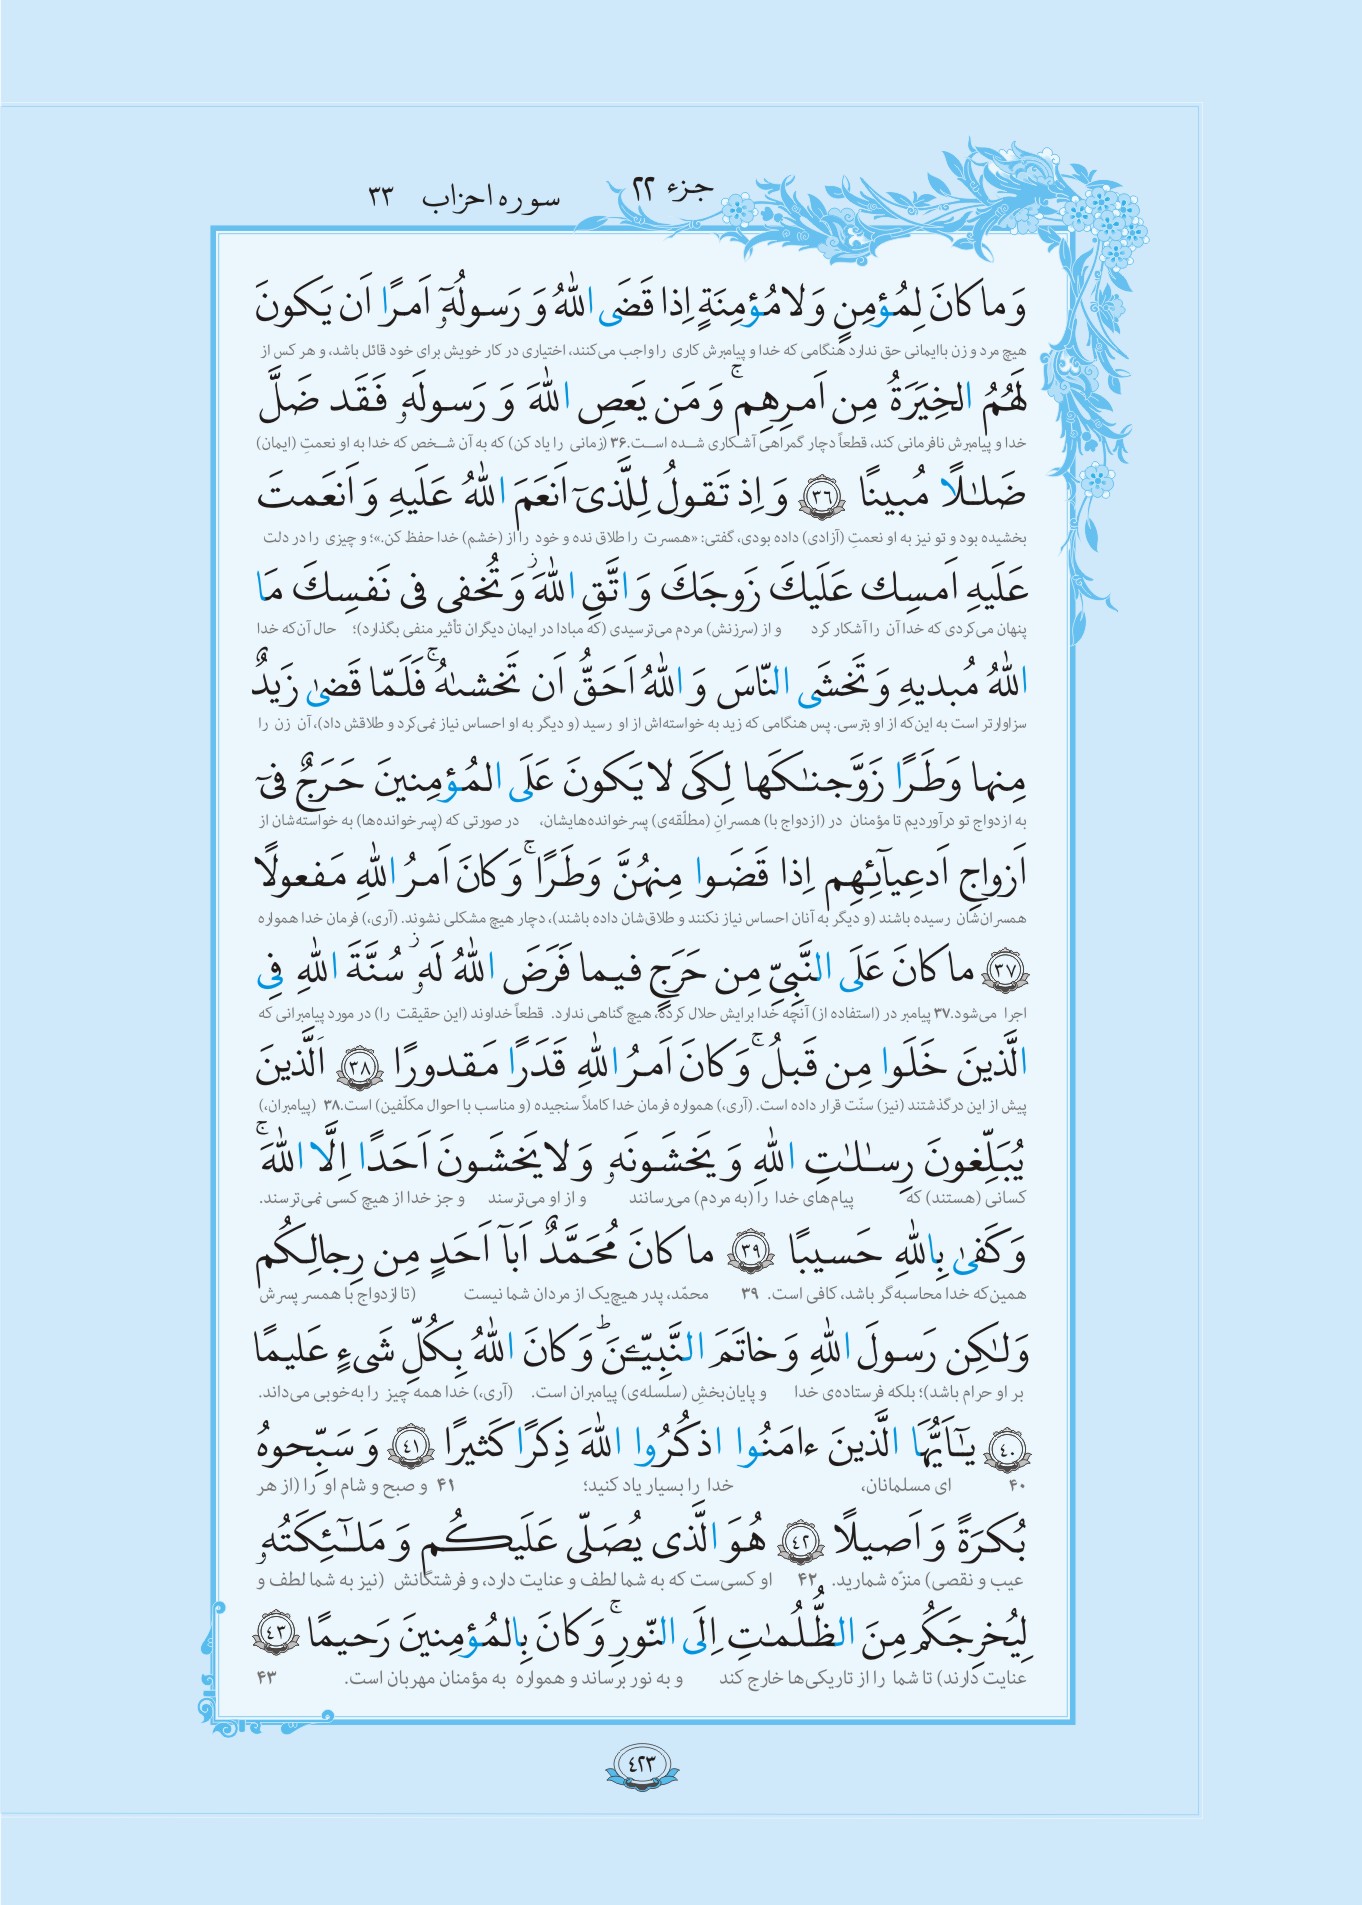 جزء ۲۲
سوره احزاب ۳۳
وَ ما كانَ لِمُؤمِنٍ وَلا مُؤمِنَةٍ اِذا قَضَى اللهُ وَ رَسولُهٓ اَمرًا اَن يَكونَ
هیچ مرد و زن باایمانی حق ندارد هنگامی که خدا و پیامبرش کاری را واجب می‌کنند، اختیاری در کار خویش برای خود قائل باشد، و هر کس از
لَهُمُ الخِيَرَةُ مِن اَمرِهِم ۚ وَ مَن يَعصِ اللهَ وَ رَسولَهٗ فَقَد ضَلَّ
خدا و پیامبرش نافرمانی کند، قطعاً دچار گمراهی آشکاری شده است.۳۶ (زمانی را یاد کن) که به آن شخص که خدا به او نعمتِ (ایمان)
ضَلـٰلًا مُبينًا ﴿٣٦﴾ وَ اِذ تَقولُ لِلَّذىٓ اَنعَمَ اللهُ عَلَيهِ وَ اَنعَمتَ
بخشیده بود و تو نیز به او نعمتِ (آزادی) داده بودی، گفتی: «همسرت را طلاق نده و خود را از (خشم) خدا حفظ کن.»؛ و چیزی را در دلت
عَلَيهِ اَمسِك عَلَيكَ زَوجَكَ وَ اتَّقِ اللهَ وَ تُخفى فى نَفسِكَ مَا
پنهان می‌کردی که خدا آن را آشکار کرد و از (سرزنش) مردم می‌ترسیدی (که مبادا در ایمان دیگران تأثیر منفی بگذارد)؛ حال آن‌که خدا
اللهُ مُبديهِ وَ تَخشَى النّاسَ وَ اللهُ اَحَقُّ اَن تَخشىٰهُ ۚ فَلَمّا قَضىٰ زَيدٌ
سزاوارتر است به این‌که از او بترسی. پس هنگامی که زید به خواسته‌اش از او رسید (و دیگر به او احساس نیاز نمی‌کرد و طلاقش داد)، آن زن را
مِنها وَطَرًا زَوَّجنـٰكَها لِكَى لا يَكونَ عَلَى المُؤمِنينَ حَرَجٌ فىٓ
به ازدواج تو درآوردیم تا مؤمنان در (ازدواج با) همسرانِ (مطلّقه‌ی) پسرخوانده‌هایشان، در صورتی که (پسرخوانده‌ها) به خواسته‌شان از
اَزواجِ اَدعِيآئِهِم اِذا قَضَوا مِنهُنَّ وَطَرًا ۚ وَ كانَ اَمرُ اللهِ مَفعولًا
همسران‌شان رسیده باشند (و دیگر به آنان احساس نیاز نکنند و طلاق‌شان داده باشند)، دچار هیچ مشکلی نشوند. (آری،) فرمان خدا همواره
﴿٣٧﴾ ما كانَ عَلَى النَّبِىِّ مِن حَرَجٍ فيما فَرَضَ اللهُ لَهٗ سُنَّةَ اللهِ فِى
اجرا می‌شود.۳۷ پیامبر در (استفاده از) آنچه خدا برایش حلال کرده، هیچ گناهی ندارد. قطعاً خداوند (این حقیقت را) در مورد پیامبرانی که
الَّذينَ خَلَوا مِن قَبلُ ۚ وَ كانَ اَمرُ اللهِ قَدَرًا مَقدورًا ﴿٣٨﴾ اَلَّذينَ
پیش از این درگذشتند (نیز) سنّت قرار داده است. (آری،) همواره فرمان خدا کاملاً سنجیده (و مناسب با احوال مکلّفین) است.۳۸ (پیامبران،)
يُبَلِّغونَ رِسـٰلـٰتِ اللهِ وَ يَخشَونَهٗ وَ لا يَخشَونَ اَحَدًا اِلَّا اللهَ ۚ
کسانی (هستند) که پیام‌های خدا را (به مردم) می‌رسانند و از او می‌ترسند و جز خدا از هیچ کسی نمی‌ترسند.
وَ كَفىٰ بِاللهِ حَسيبًا ﴿٣٩﴾ ما كانَ مُحَمَّدٌ اَبآ اَحَدٍ مِن رِجالِكُم
همین‌که خدا محاسبه‌گر باشد، کافی است. ۳۹ محمّد، پدر هیچ‌یک از مردان شما نیست (تا ازدواج با همسر پسرش
وَلـٰكِن رَسولَ اللهِ وَ خاتَمَ النَّبِيّـۧنَ ؕ وَ كانَ اللهُ بِكُلِّ شَىءٍ عَليمًا
بر او حرام باشد)؛ بلکه فرستاده‌ی خدا و پایان‌بخشِ (سلسله‌ی) پیامبران است. (آری،) خدا همه چیز را به‌خوبی می‌داند.
﴿٤٠﴾ يـٰٓاَيُّهَا الَّذينَ ءامَنُوا اذكُرُوا اللهَ ذِكرًا كَثيرًا ﴿٤١﴾ وَ سَبِّحوهُ
۴۰ ای مسلمانان، خدا را بسیار یاد کنید؛ ۴۱ و صبح و شام او را (از هر
بُكرَةً وَ اَصيلًا ﴿٤٢﴾ هُوَ الَّذى يُصَلّى عَلَيكُم وَ مَلـٰٓئِكَتُهٗ
عیب و نقصی) منزّه شمارید. ۴۲ او کسی‌ست که به شما لطف و عنایت دارد، و فرشتگانش (نیز به شما لطف و
لِيُخرِجَكُم مِنَ الظُّلُمـٰتِ اِلَى النّورِ ۚ وَ كانَ بِالمُؤمِنينَ رَحيمًا ﴿٤٣﴾
عنایت دارند) تا شما را از تاریکی‌ها خارج کند و به نور برساند و همواره به مؤمنان مهربان است. ۴۳
٤٢٣